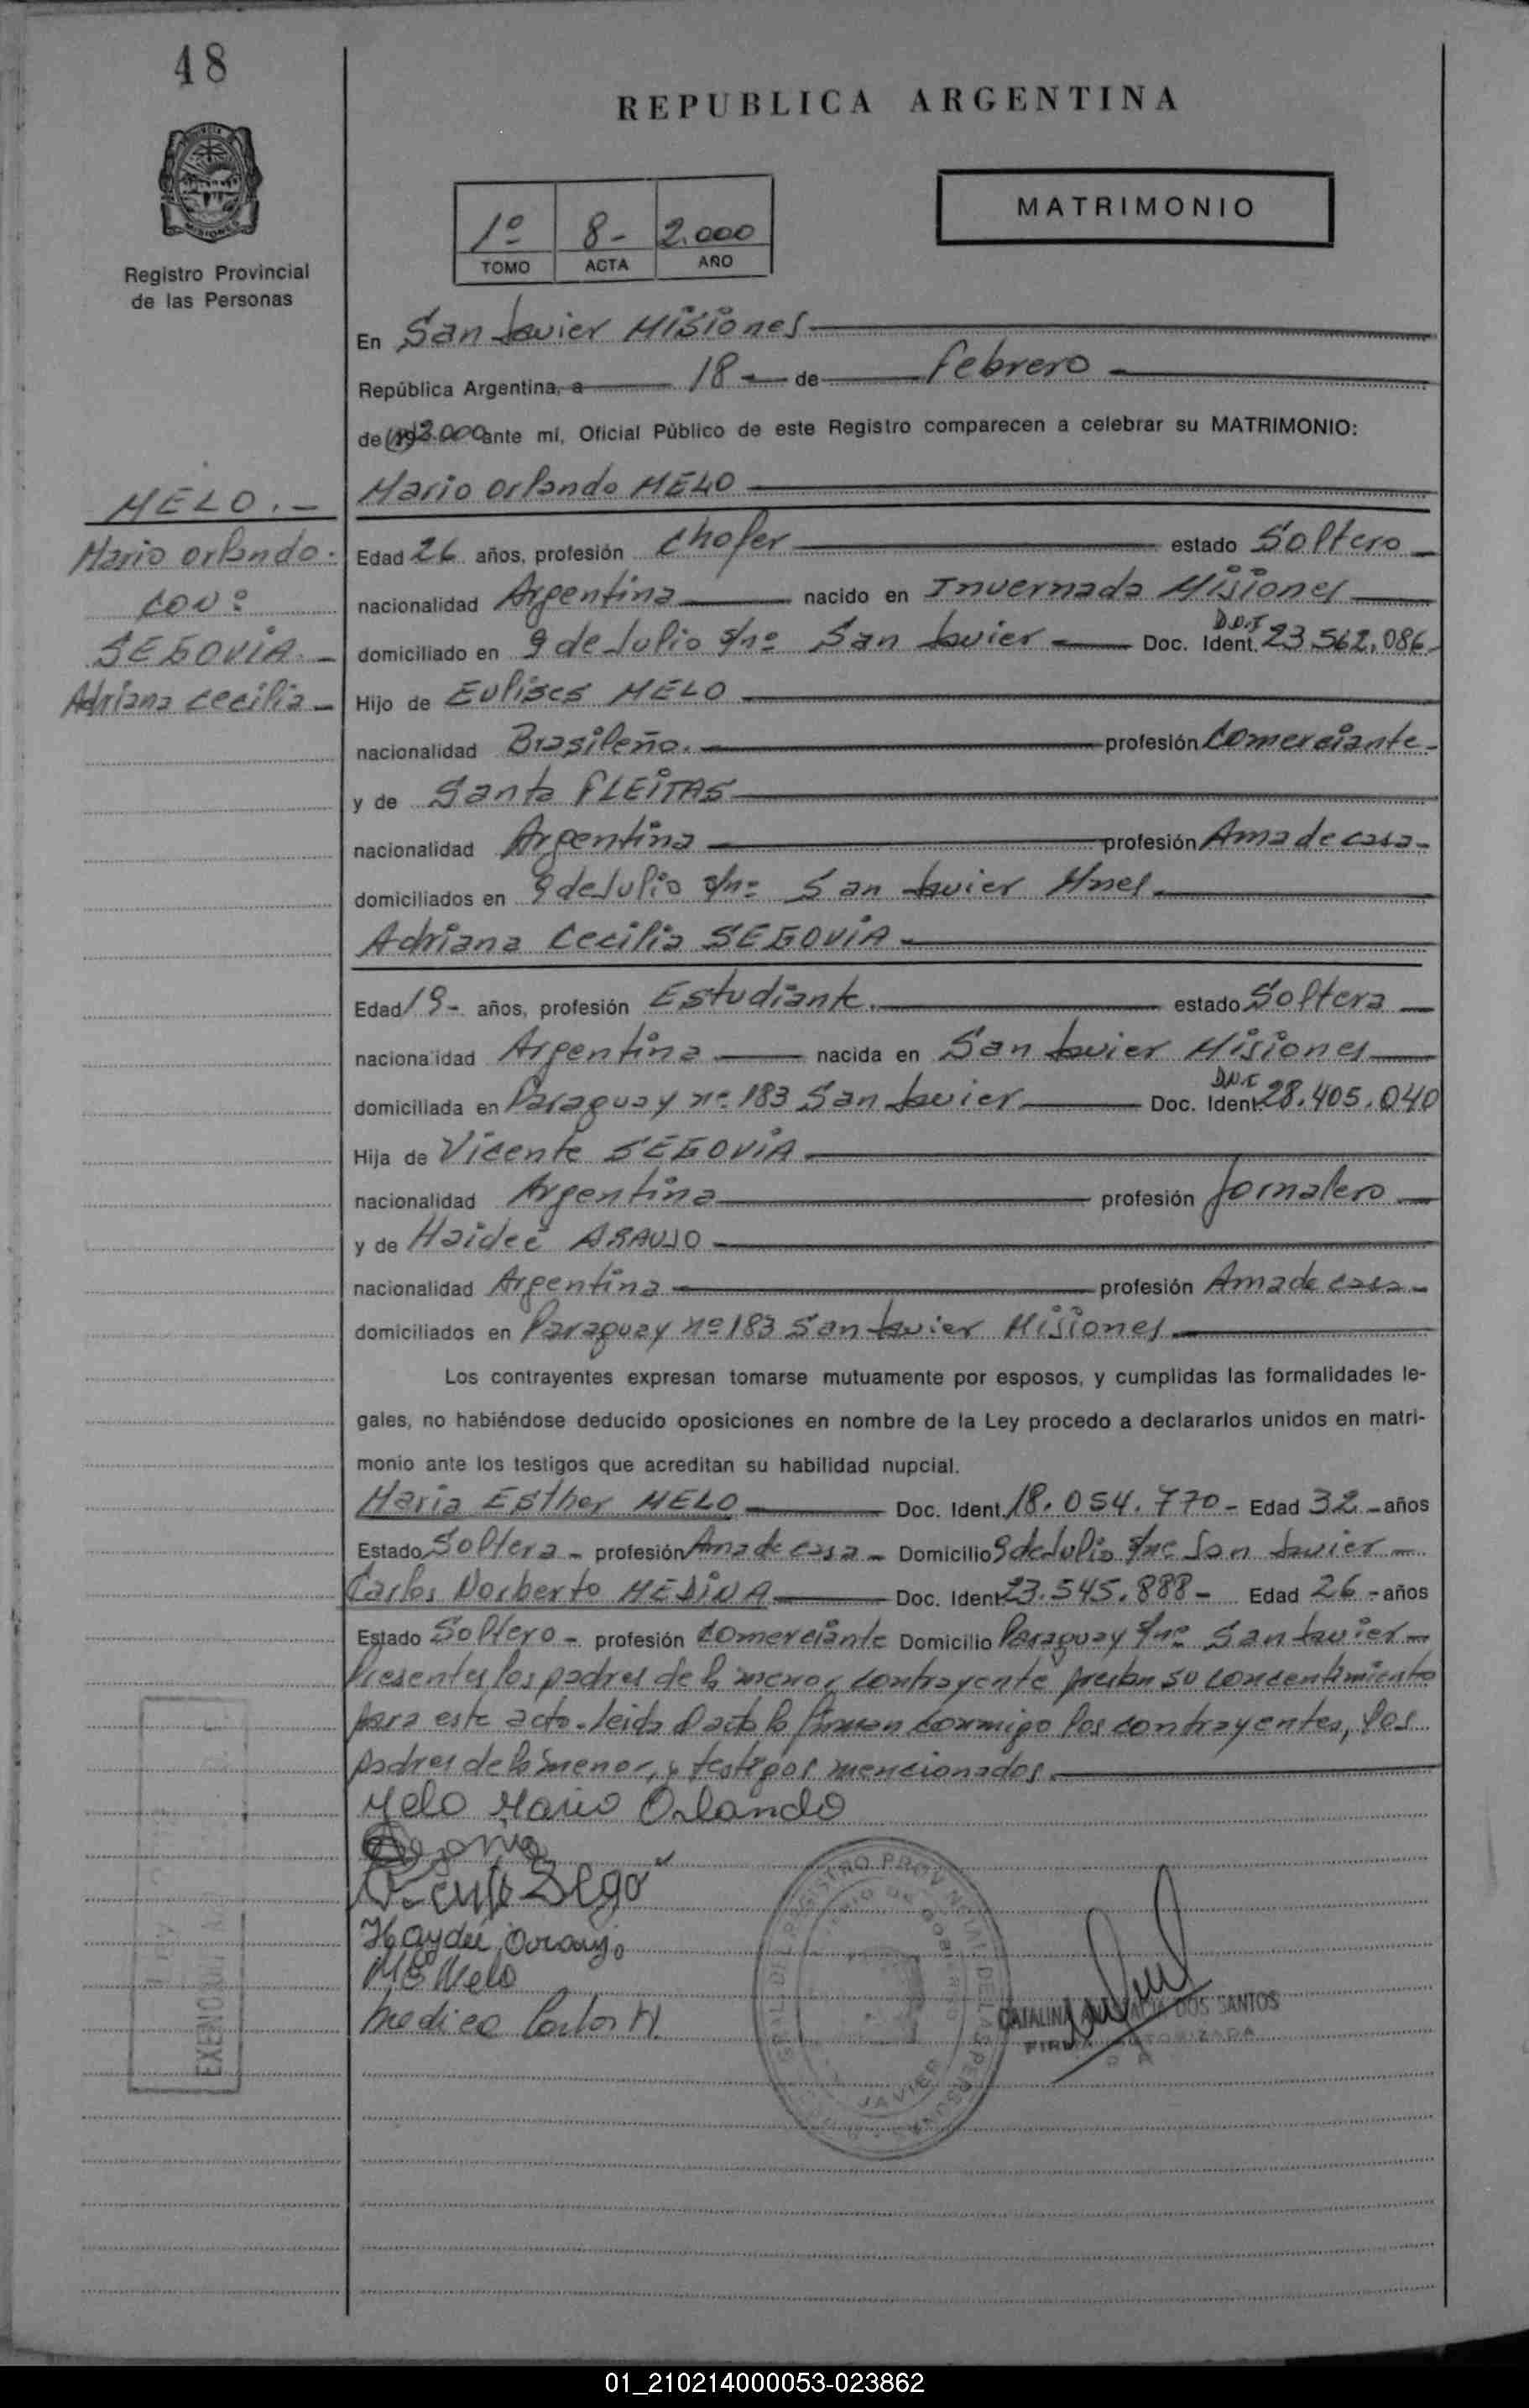 48
REPUBLICA ARGENTINA
MATRIMONIO
1º 8- 2.000
TOMO ACTA AÑO
Registro Provincial
de las Personas
En San Javier Misiones
República Argentina, a 18 - de febrero
de (19) 2.000 ante mí, Oficial Público de este Registro comparecen a celebrar su MATRIMONIO:
MELO.-
Mario Orlando.
CON:
SEGOVIA.-
Adriana Cecilia-
Mario Orlando MELO
Edad 26 años, profesión Chofer estado Soltero
nacionalidad Argentina nacido en Invernada Misiones
domiciliado en 9 de Julio s/nº San Javier Doc. Ident. D.N.I 23.562.086
Hijo de Eulises MELO
nacionalidad Brasileña. profesión Comerciante-
y de Santa FLEITAS
nacionalidad Argentina profesión Ama de casa-
domiciliados en 9 de Julio s/nº San Javier Mnes.
Adriana Cecilia SEGOVIA
Edad 19- años, profesión Estudiante. estado Soltera
nacionalidad Argentina nacida en San Javier Misiones
domiciliada en Paraguay nº 183 San Javier Doc. Ident. D.N.I 28.405.040
Hija de Vicente SEGOVIA
nacionalidad Argentina profesión Jornalero
y de Haideé ARAUJO
nacionalidad Argentina profesión Ama de casa-
domiciliados en Paraguay nº 183 San Javier Misiones
Los contrayentes expresan tomarse mutuamente por esposos, y cumplidas las formalidades le-
gales, no habiéndose deducido oposiciones en nombre de la Ley procedo a declararlos unidos en matri-
monio ante los testigos que acreditan su habilidad nupcial.
Maria Esther MELO Doc. Ident. 18.054.770- Edad 32 - años
Estado Soltera - profesión Ama de casa - Domicilio 9 de Julio s/nº San Javier
Carlos Norberto MEDINA Doc. Ident 23.545.888- Edad 26 - años
Estado Soltero - profesión Comerciante Domicilio Paraguay s/nº San Javier
Presentes los padres de la menor contrayente prestan su concentimiento
para este acto. Leida el acta la firman conmigo los contrayentes, los
padres de la menor, y testigos mencionados.
Melo Mario Orlando
Haydeé Araujo
M E Melo
Medina Carlos N.
REGISTRO PROVINCIAL DE LAS PERSONAS
JAVIER
CATALINA DOS SANTOS
FIRMA AUTORIZADA
EXENO
01_210214000053-023862